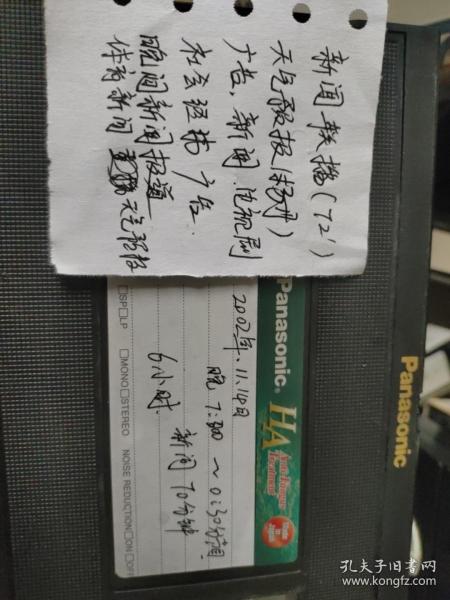 新闻联播(72′)
天气预报(杨丹)
广告、新闻、电视剧
社会经纬 广告.
晚间新闻报道
体育新闻 天气预报
Panasonic
Panasonic®
HA
Made in Japan
2002年.11.14日
晚 7:00 ~ 0:30分
6小时.
新闻 70分钟
□SP□LP □MONO□STEREO NOISE REDUCTION□ON□OFF
孔夫子旧书网
www.kongfz.com